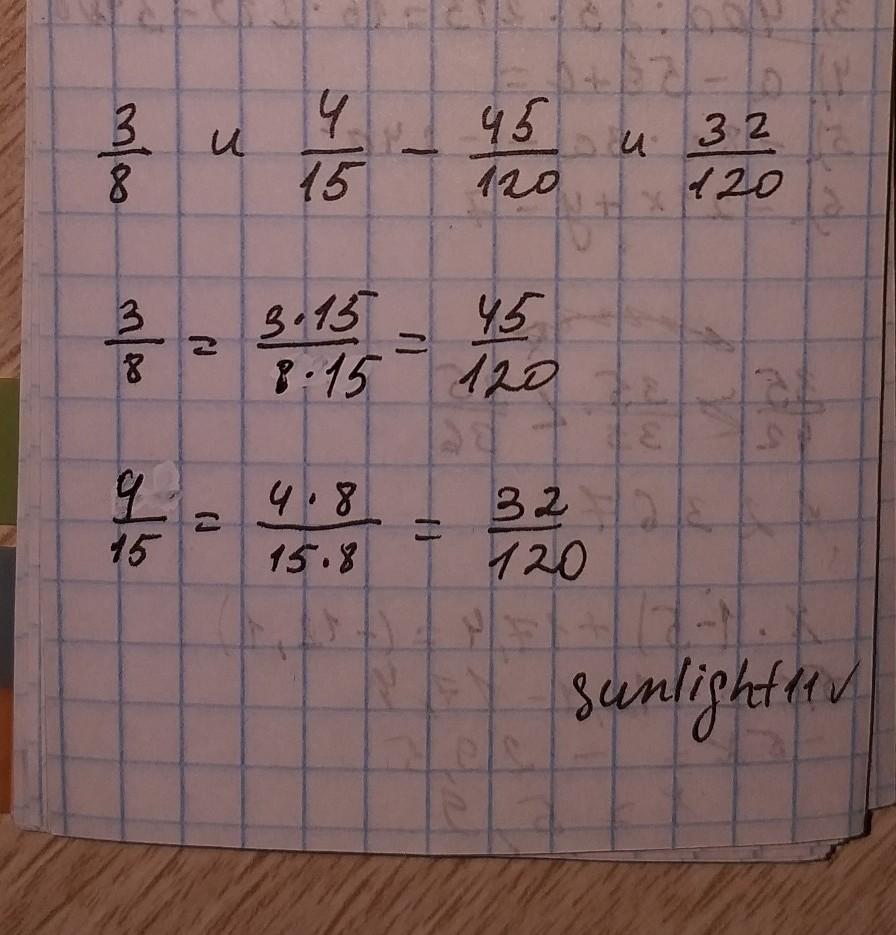 3/8 и 4/15 - 45/120 и 32/120
3/8 = 3·15/8·15 = 45/120
4/15 = 4·8/15·8 = 32/120
sunlight11√